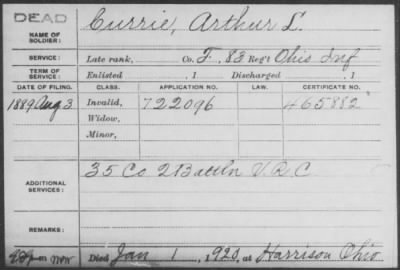 DEAD
NAME OF SOLDIER: Currie, Arthur L.
SERVICE: Late rank, Co. F, 83 Reg't Ohio Inf
TERM OF SERVICE: Enlisted , 1 Discharged , 1
DATE OF FILING. CLASS. APPLICATION NO. LAW. CERTIFICATE NO.
1889 Aug 3 Invalid, 722096 465882
Widow,
Minor,
ADDITIONAL SERVICES: 35 Co 2 Battln V R C
REMARKS:
Died Jan 1, 1920, at Harrison Ohio